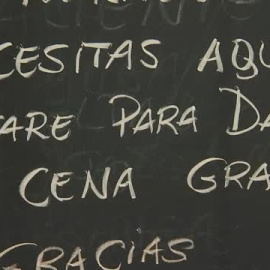 CESITAS AQU
ARE PARA DA
CENA GRA
GRACIAS